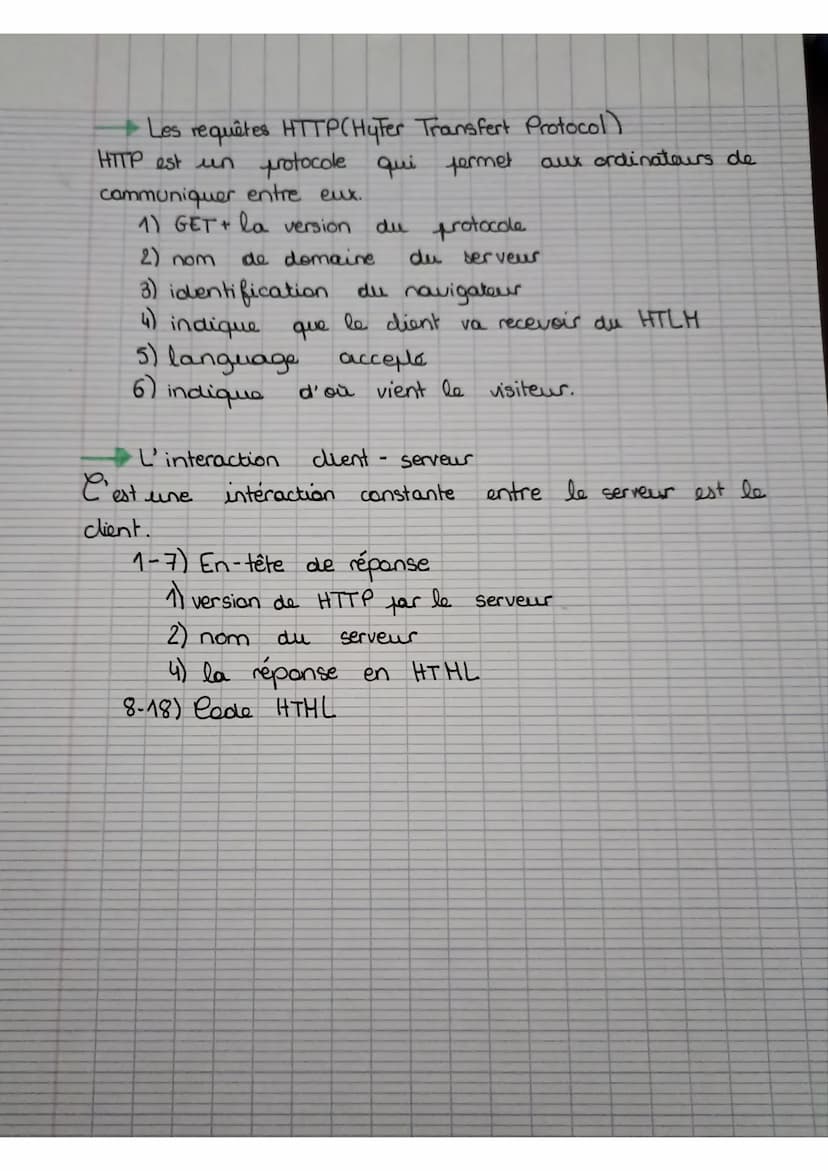 → Les requêtes HTTP(HyTer Transfert Protocol)
HTTP est un protocole qui permet aux ordinateurs de
communiquer entre eux.
1) GET + la version du protocole
2) nom de domaine du serveur
3) identification du navigateur
4) indique que le client va recevoir du HTLM
5) language accepté
6) indique d'où vient le visiteur.
→ L'interaction client - serveur
C'est une intéraction constante entre le serveur est le
client.
1-7) En-tête de réponse
1) version de HTTP par le serveur
2) nom du serveur
4) la réponse en HTML
8-18) Code HTML